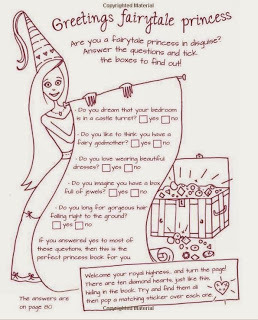 Copyrighted Material
Greetings fairytale princess
Are you a fairytale princess in disguise?
Answer the questions and tick
the boxes to find out!
- Do you dream that your bedroom
is in a castle turret? yes no
- Do you like to think you have a
fairy godmother? yes no
- Do you love wearing beautiful
dresses? yes no
- Do you imagine you have a box
full of jewels? yes no
- Do you long for gorgeous hair
falling right to the ground?
yes no
If you answered yes to most of
these questions, then this is the
perfect princess book for you.
Welcome your royal highness, and turn the page!
There are ten diamond hearts, just like this,
hiding in the book. Try and find them all
then pop a matching sticker over each one.
The answers are
on page 80.
Copyrighted Material